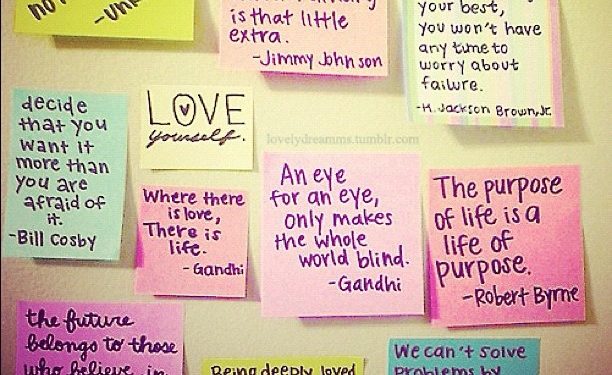 is that little
extra.
-Jimmy Johnson
your best,
you won't have
any time to
worry about
failure.
-H. Jackson Brown, Jr.
decide
that you
want it
more than
you are
afraid of
it.
-Bill Cosby
LOVE
yourself.
lovelydreamms.tumblr.com
Where there
is love,
There is
life.
- Gandhi
An eye
for an eye,
only makes
the whole
world blind.
-Gandhi
The purpose
of life is a
life of
purpose.
-Robert Byrne
the future
belongs to those
who believe in
Being deeply loved
We can't solve
problems by